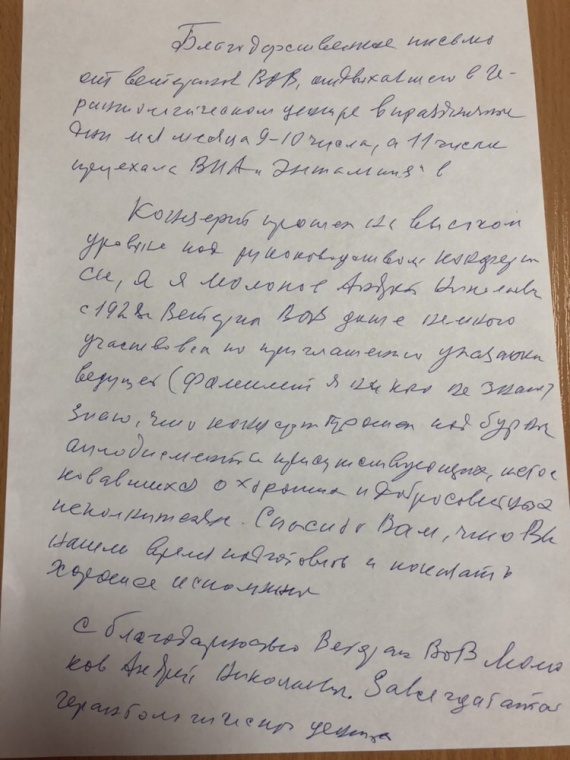 Благодарственное письмо
от ветеранов ВОВ, отдыхавшего в Ге-
ронтологическом центре в праздничные
дни мая месяца 9-10 числа, а 11 числа
приехала ВИА „Энталия" в
Концерт прошел на высоком
уровне под руководством
си, а я Молоков Андрей Николаевич
с 1928 Ветеран ВОВ даже немного
участвовал по приглашению
ведущей (фамилией я их не знаю)
знаю, что концерт прошел под бурные
аплодисменты присутствующих,
о хороших и добросовестных
исполнителях. Спасибо Вам, что Вы
нашли время подготовить и показать
хорошее
с благодарностью Ветеран ВОВ Моло
ков Андрей Николаевич.
геронтологического центра